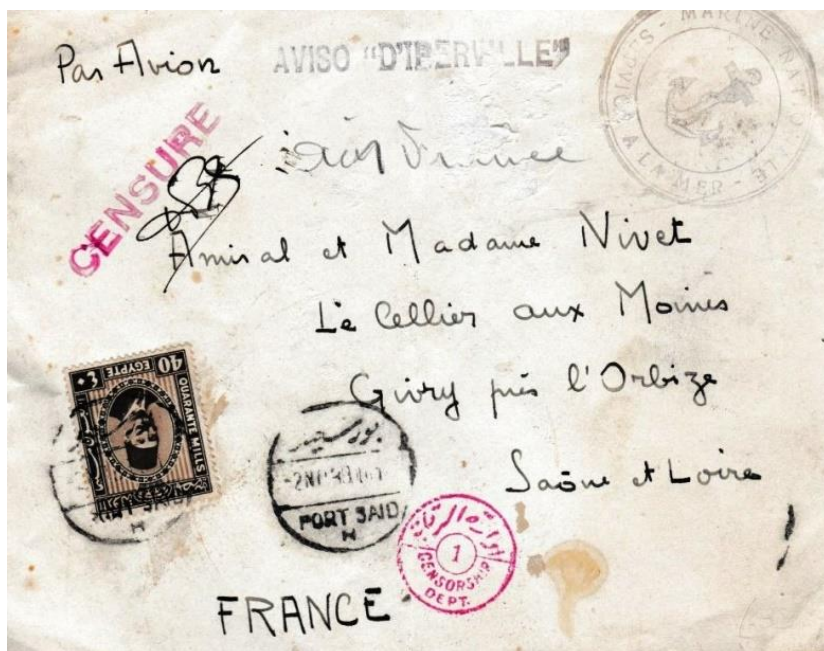 Par Avion
AVISO "D'IBERVILLE"
MARINE NATIONALE
A LA MER
CENSURE
France
Amiral et Madame Nivet
Le Cellier aux Moines
Givry près l'Orbize
Saône et Loire
40
EGYPTE
٤٠
QUARANTE MILLS
بور سعيد
PORT SAID
H
1
CENSORSHIP
DEPT.
FRANCE